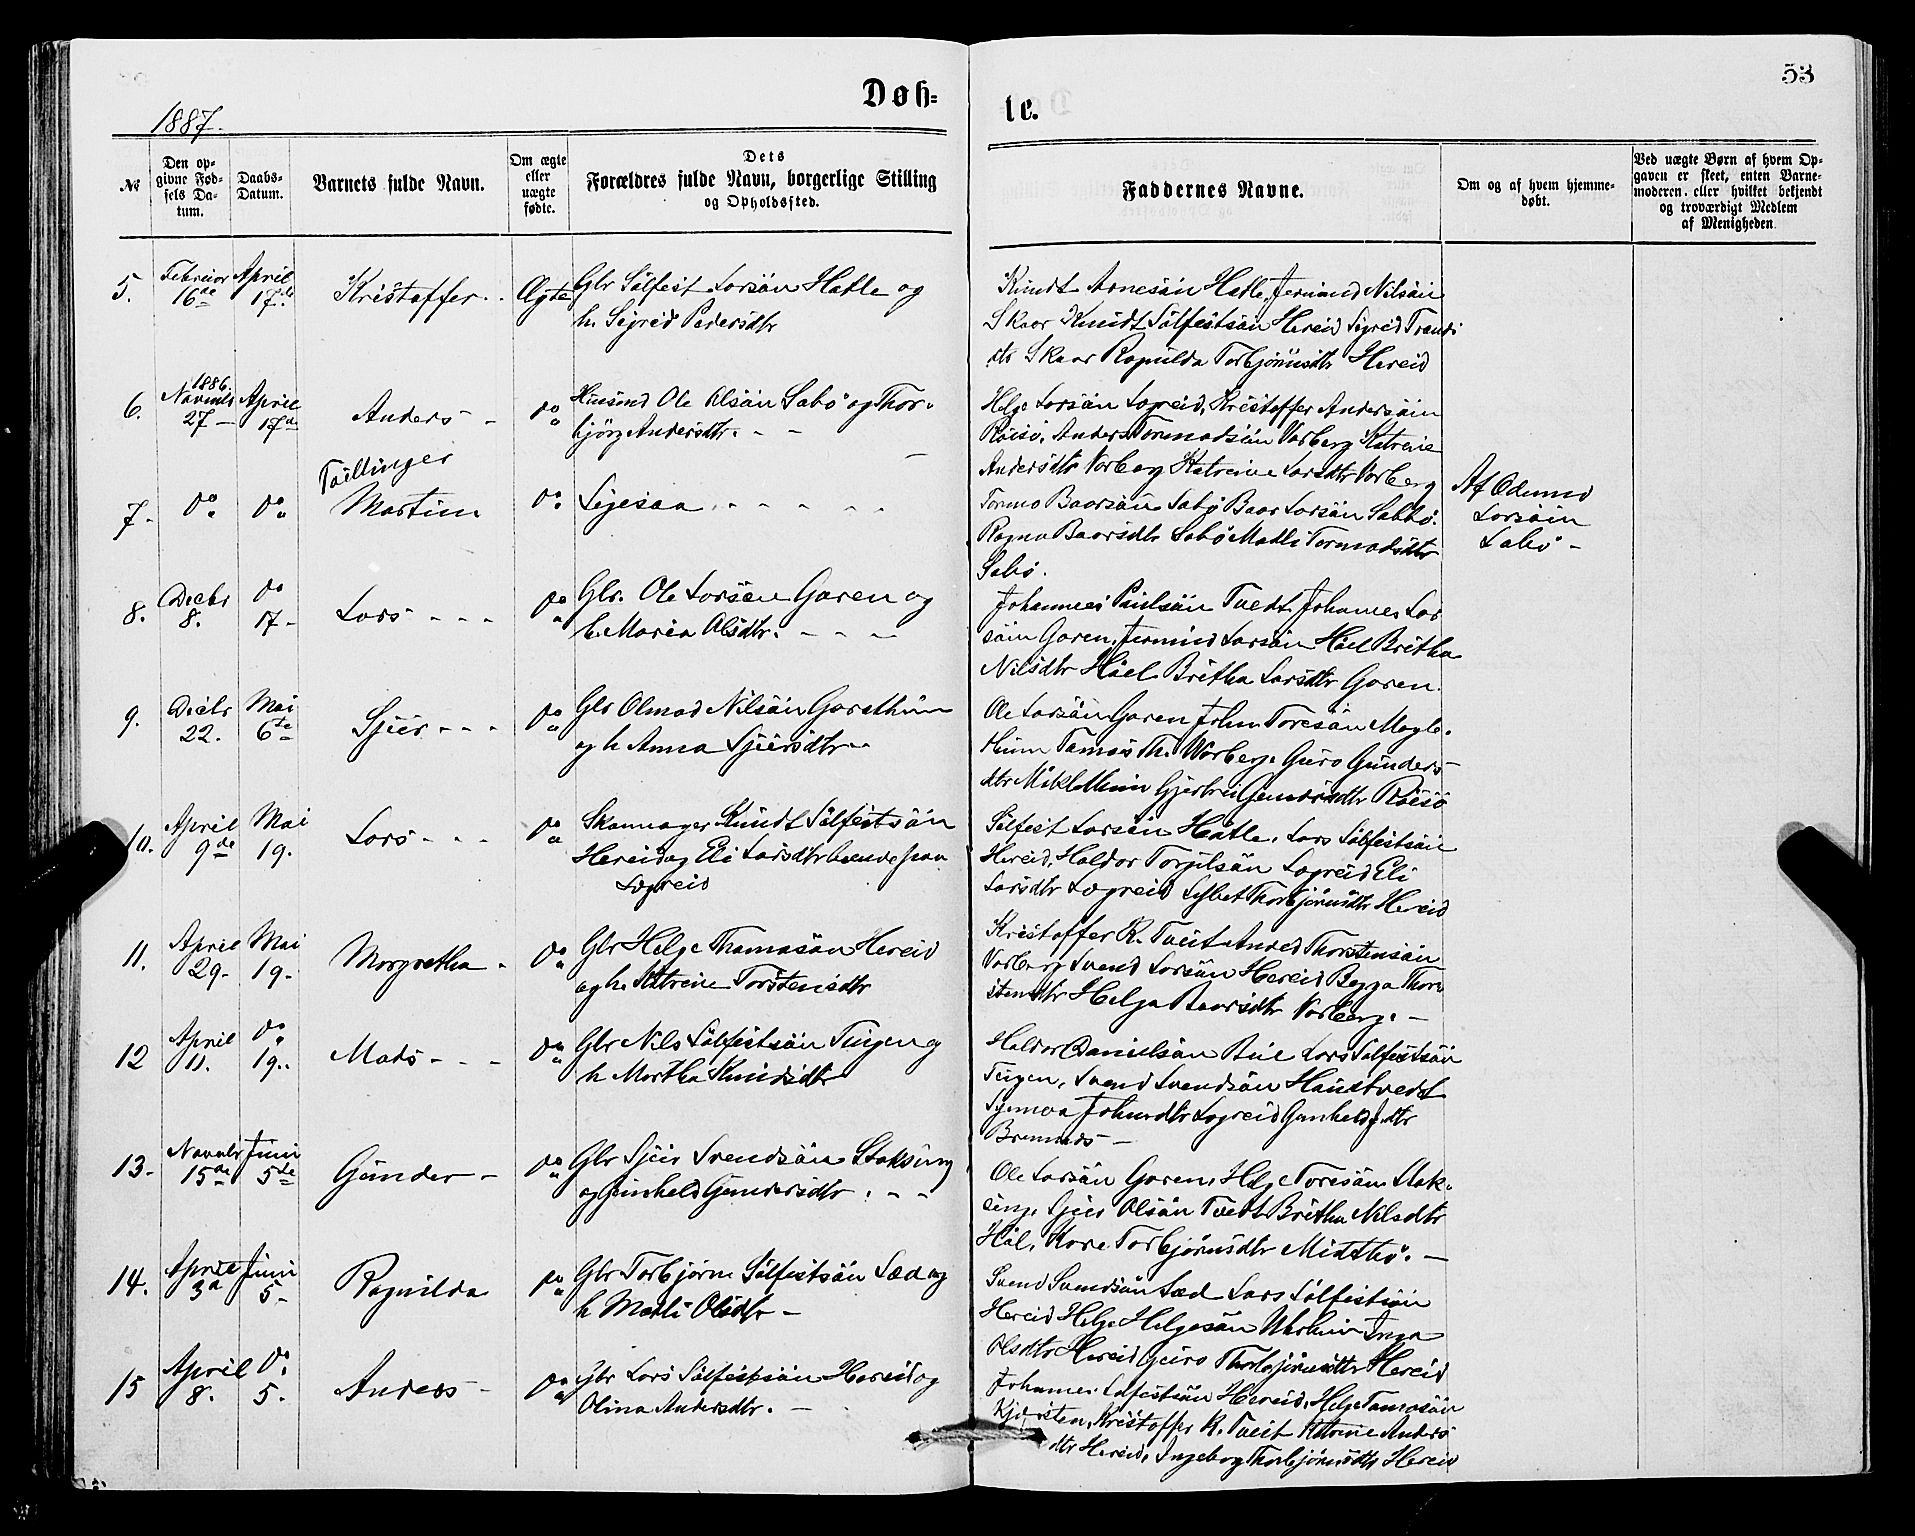 53
Døb-
te.
1887.
№
Den op-
givne Fød-
sels Da-
tum.
Daabs-
Datum.
Barnets fulde Navn.
Om ægte
eller
uægte
fødte.
Dets
Forældres fulde Navn, borgerlige Stilling
og Opholdssted.
Faddernes Navne.
Om og af hvem hjemme-
døbt.
Ved uægte Børn af hvem Op-
gaven er skeet, enten Barne-
moderen, eller hvilket bekjendt
og troværdigt Medlem
af Menigheden.
5.
Februar
16de
April
17de
Kristoffer
Ægte
Gbr Sölfest Larsön Hatle og
h. Sigrid Pedersdtr
Knudt Arnesön Hatle, Jermund Nilsön
Skaar Knudt Sölfestsön Hereid Sigrid Tronds
dtr Skaar Ragnilda Torbjörnsdtr Hereid
6.
1886.
Novmbr
27 —
April
17de
Anders -
do
Husmd Ole Olsön Sabö og Thor-
björg Andersdtr. - -
Helge Larsön Lægreid, Kristoffer Andersön
Röisö, Anders Tormodsön Varberg Katrine
Andersdtr Varberg Katrine Larsdtr Varberg
Tvillinger
7.
do
do
Martin
do
Ligesaa. - - - - -
Tormo Baarsön Sabö Baar Larsön Sabbö.
Ragna Baarsdtr Sabö Matli Tormodsdtr
Sabö.
Af Odmund
Larsön
Sabö -
8.
Decbr
8.
do
17 -
Lars - - -
do
Gbr. Ole Larsön Garen og
h. Maria Olsdtr. - - -
Johannes Paulsön Tvedt, Johannes Lar
sön Garen, Jermund Larsön Häel Britha
Nilsdtr Häel Britha Larsdtr Garen.
9.
Decbr
22.
Mai
6te
Sjur - - -
do
Gbr Olmod Nilsön Garathun
og h Anna Sjursdtr -
Ole Larsön Garen John Toresön Mögle-
thun Tamas Th. Varberg. Guro Gunders-
dtr Miklethun Gjertru Gundersdtr Röisö
10.
April
9de
Mai
19.
Lars - - -
do
Skomager Knudt Sölfestsön
Hereid og Eli Larsdtr boende paa
Lægreid
Sölfest Larsön Hatle. Lars Sölfestsön
Hereid, Haldor Torgilsön Lægreid Eli
Larsdtr Lægreid Lisbet Thorbjörnsdtr Hereid
11.
April
29.
Mai
19.
Margretha -
do
Gbr Helge Thomasön Hereid
og h. Katrine Torstensdtr
Kristoffer K. Tveit Anved Thorstensön
Varberg Svend Larsön Hereid Begga Thor
stensdtr Helga Baarsdtr Varberg. -
12
April
11.
do
19.
Mads - - -
do
Gbr Nils Sölfestsön Tingen og
h Martha Knudsdtr
Haldor Danielsön Bue Lars Sölfestsön
Tingen, Svend Svendsön Haustvedt
Synneva Johnsdtr Lægreid Gunheld J.dtr
13.
Novmbr
15de
Juni
5te
Gunder -
do
Gbr Sjur Svendsön Staksing
og Gunheld Gundersdtr. - -
Ole Larsön Garen, Helge Toresön Stak-
sing. Sjur Olsön Tvedt Britha Nilsdtr
Häl, Kare Torbjörnsdtr Midtbö. -
14.
April
3d
Juni
5 -
Ragnilda
do
Gbr Torbjörn Sölfestsön Sæd og
h Matli Olsdtr -
Svend Svendsön Sæd Lars Sölfestsön
Hereid Helge Helgesön Inga
Olsdtr Hereid Guro Thorbjörnsdtr Hereid
15
April
8.
do
5.
Anders -
do
Gbr Lars Sölfestsön Hereid og
Olina Andersdtr. -
Johannes Sölfestsön Hereid, Helge Tamasön
Kristoffer K. Tveit Katrine Anders
dtr Hereid, Ingeborg Thorbjörnsdtr Hereid